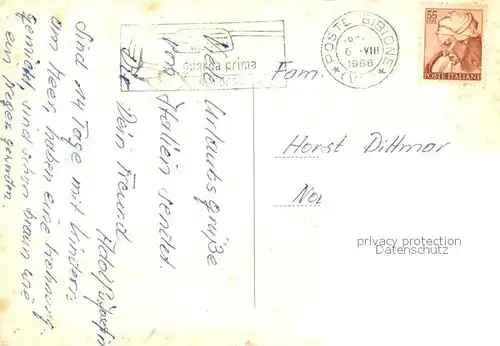 Sind 14 Tage mit Kindern
am Meer, haben eine Wohnung
gemietet, sind schon braun wie
ein Neger geworden.
Viele Urlaubsgrüße
von Italien sendet
Dir Dein Freund
Adolf
guarda prima
POSTE BIBIONE
6 -VIII
1966
55
LIRE
POSTE ITALIANE
Fam.
Horst Dittmar
privacy protection
Datenschutz